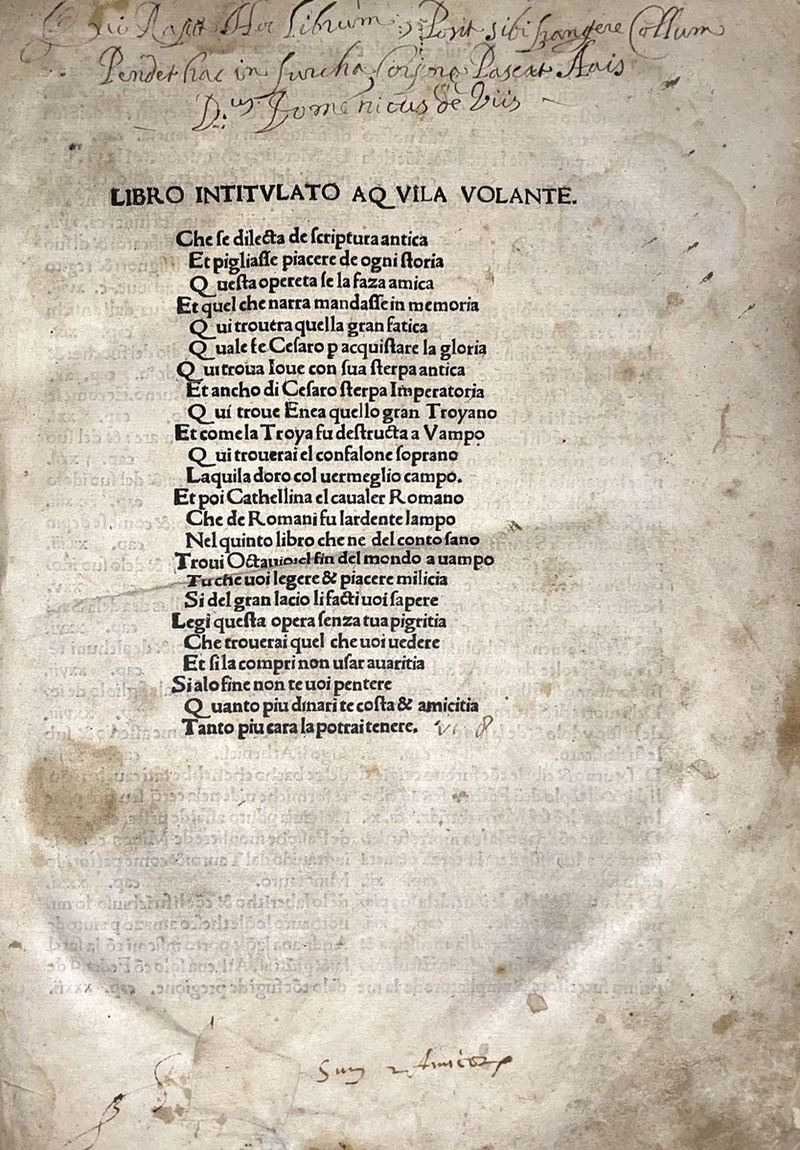 Qui Rapit Hoc Librum; Posit sibi frangere Collum
Pendet hac in furcha, Pascat Auis
D.us Domenicus de Viis
LIBRO INTITVLATO AQVILA VOLANTE.
Che se dilecta de scriptura antica
Et pigliasse piacere de ogni storia
Questa opereta se la faza amica
Et quel che narra mandasse in memoria
Qui trouera quella gran fatica
Quale fe Cesaro p acquistare la gloria
Qui troua Ioue con sua sterpa antica
Et ancho di Cesaro sterpa Imperatoria
Qui troue Enea quello gran Troyano
Et come la Troya fu destructa a Vampo
Qui trouerai el confalone soprano
Laquila doro col uermeglio campo.
Et poi Cathellina el caualer Romano
Che de Romani fu lardente lampo
Nel quinto libro che ne del conto sano
Troui Octauio el fin del mondo a uampo
Tu che uoi legere & piacere milicia
Si del gran lacio li facti uoi sapere
Legi questa opera senza tua pigritia
Che trouerai quel che uoi uedere
Et si la compri non usar auaritia
Si alo fine non te uoi pentere
Quanto piu dinari te costa & amicitia
Tanto piu cara la potrai tenere.
Sum